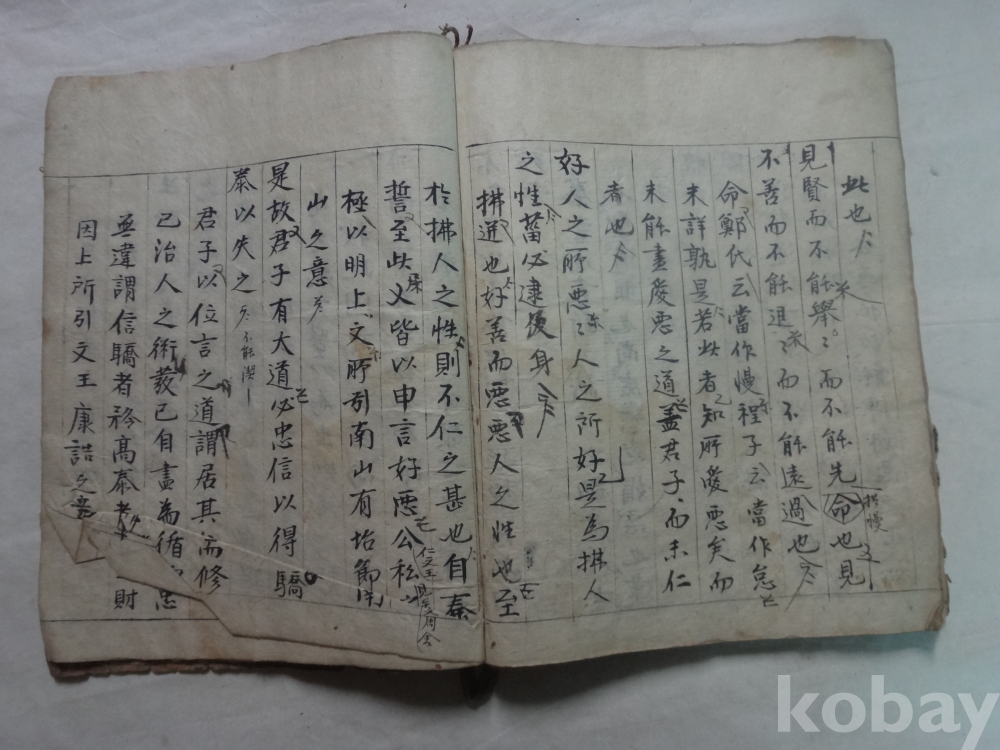 此也
見賢而不能舉〻而不能先命也見
不善而不能退〻而不能遠過也
命鄭氏云當作慢程子云當作怠
未詳孰是若此者知所愛惡矣而
未能盡愛惡之道盖君子而未仁
者也
好人之所惡〻人之所好是為拂人
之性菑必逮夫身
拂逆也好善而惡惡人之性也至
於拂人之性則不仁之甚也自秦
誓至此又皆以申言好惡公私
極以明上文所引南山有坮節南
山之意
是故君子有大道必忠信以得驕
泰以失之
君子以位言之道謂居其而修
已治人之術發已自盡為循 忠
無違謂信驕者矜高泰者 財
因上所引文王康誥之意
kobay